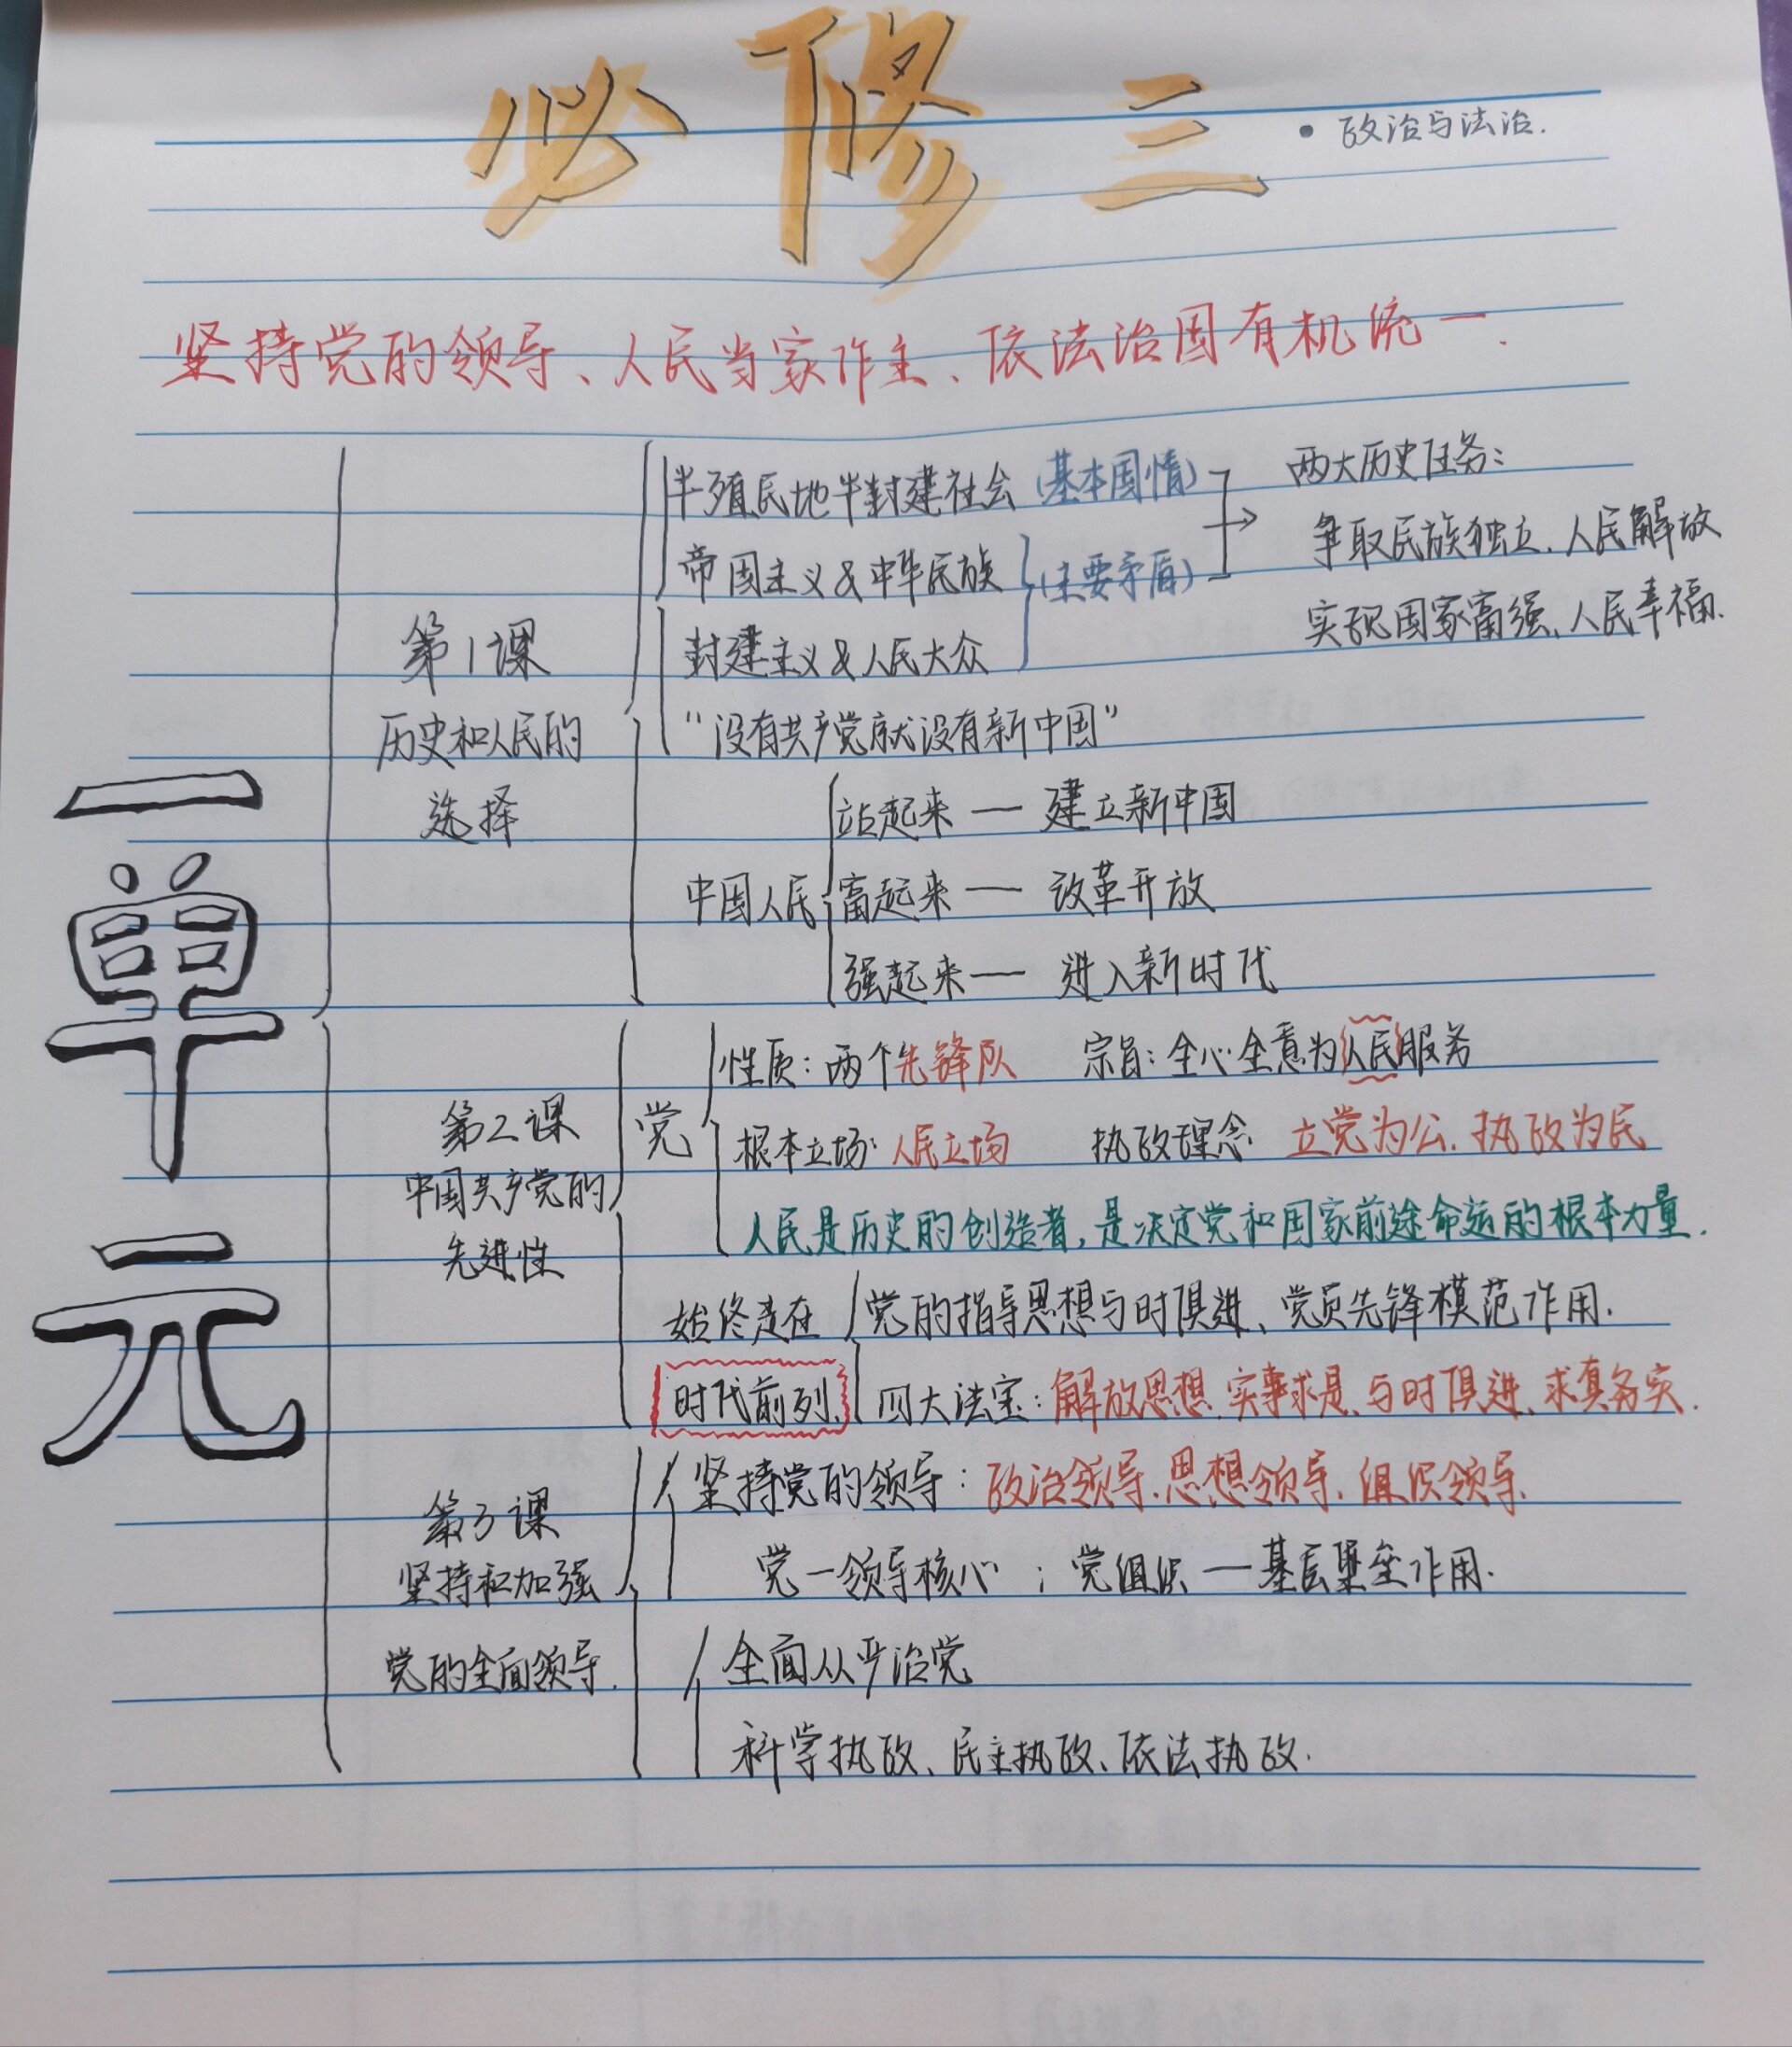 必修三
• 政治与法治.
坚持党的领导、人民当家作主、依法治国有机统一.
一单元
第1课
历史和人民的
选择
半殖民地半封建社会(基本国情)
帝国主义&中华民族
(主要矛盾)
封建主义&人民大众
两大历史任务:
争取民族独立、人民解放
实现国家富强、人民幸福.
"没有共产党就没有新中国"
中国人民
站起来 — 建立新中国
富起来 — 改革开放
强起来 — 进入新时代
第2课
中国共产党的
先进性
党
性质: 两个先锋队 宗旨: 全心全意为人民服务
根本立场: 人民立场 执政理念 立党为公、执政为民
人民是历史的创造者, 是决定党和国家前途命运的根本力量.
始终走在
时代前列.
党的指导思想与时俱进、党员先锋模范作用.
四大法宝: 解放思想、实事求是、与时俱进、求真务实.
第3课
坚持和加强
党的全面领导.
坚持党的领导: 政治领导、思想领导、组织领导.
党—领导核心 ; 党组织—基层堡垒作用.
全面从严治党
科学执政、民主执政、依法执政.